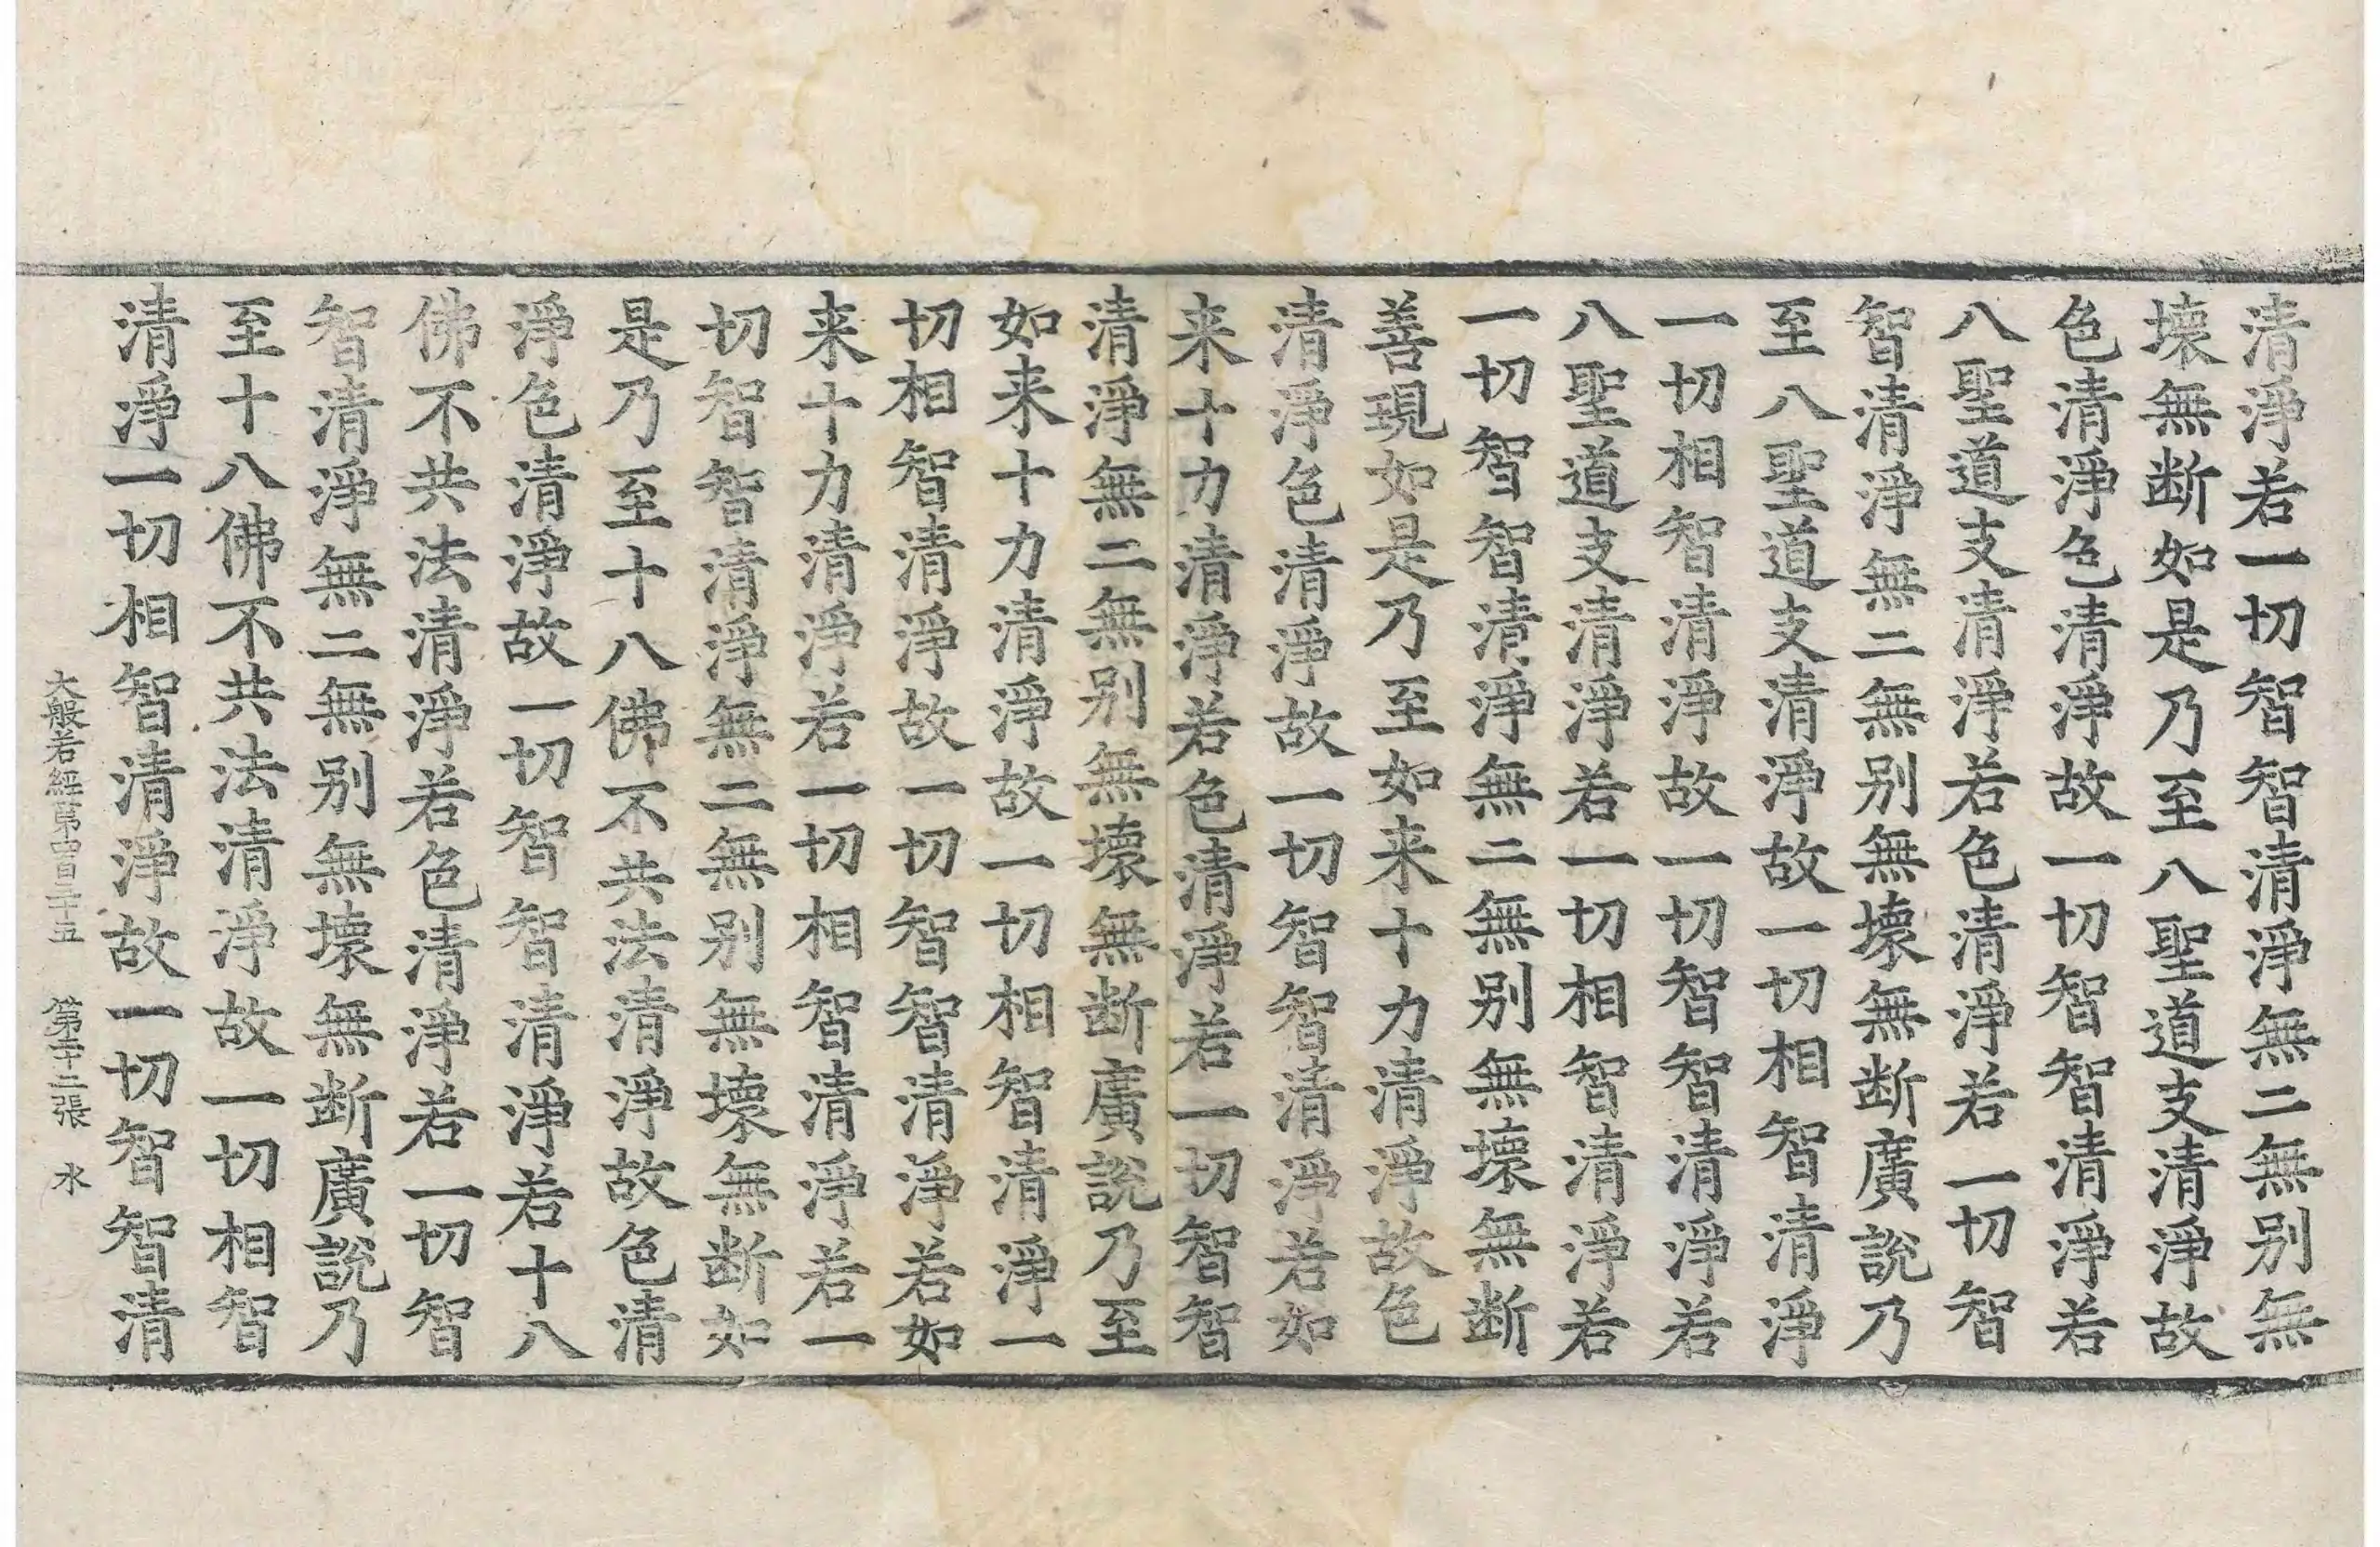 清淨若一切智智清淨無二無别無
壞無断如是乃至八聖道支清淨故
色清淨色清淨故一切智智清淨若
八聖道支清淨若色清淨若一切智
智清淨無二無别無壞無断廣說乃
至八聖道支清淨故一切相智清淨
一切相智清淨故一切智智清淨若
八聖道支清淨若一切相智清淨若
一切智智清淨無二無别無壞無断
善現如是乃至如来十力清淨故色
清淨色清淨故一切智智清淨若如
来十力清淨若色清淨若一切智智
清淨無二無别無壞無断廣說乃至
如来十力清淨故一切相智清淨一
切相智清淨故一切智智清淨若如
来十力清淨若一切相智清淨若一
切智智清淨無二無别無壞無断如
是乃至十八佛不共法清淨故色清
淨色清淨故一切智智清淨若十八
佛不共法清淨若色清淨若一切智
智清淨無二無别無壞無断廣說乃
至十八佛不共法清淨故一切相智
清淨一切相智清淨故一切智智清
大般若經第四百三十五 第二十二張 水